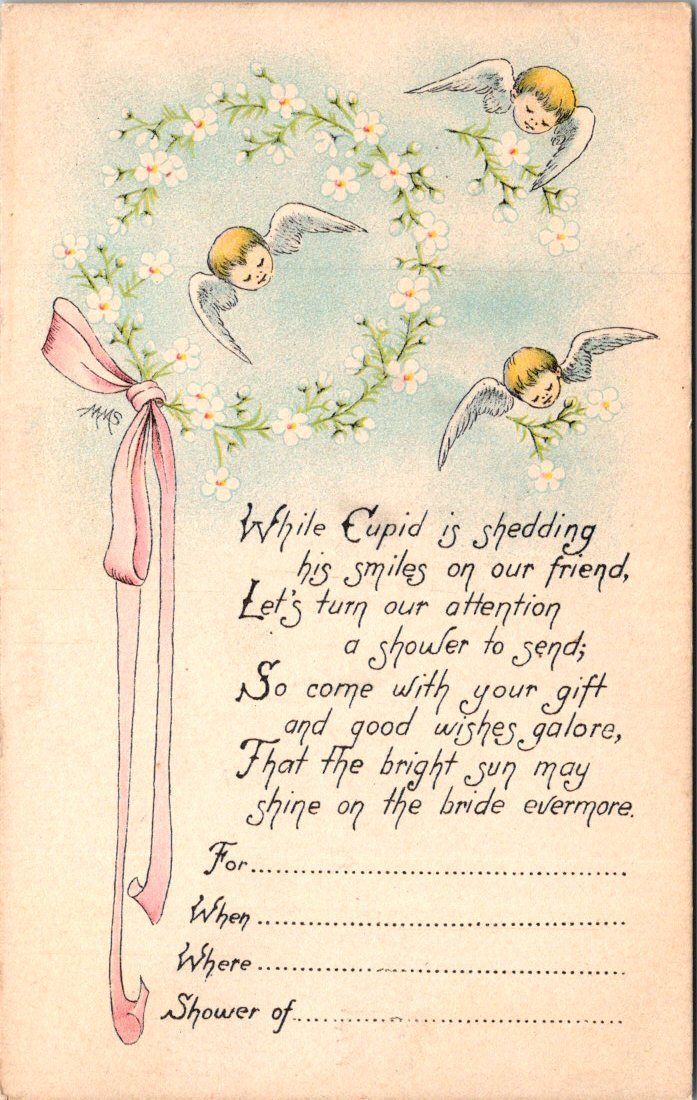 MMS
While Cupid is shedding
his smiles on our friend,
Let's turn our attention
a shower to send;
So come with your gift
and good wishes galore,
That the bright sun may
shine on the bride evermore.
For
When
Where
Shower of